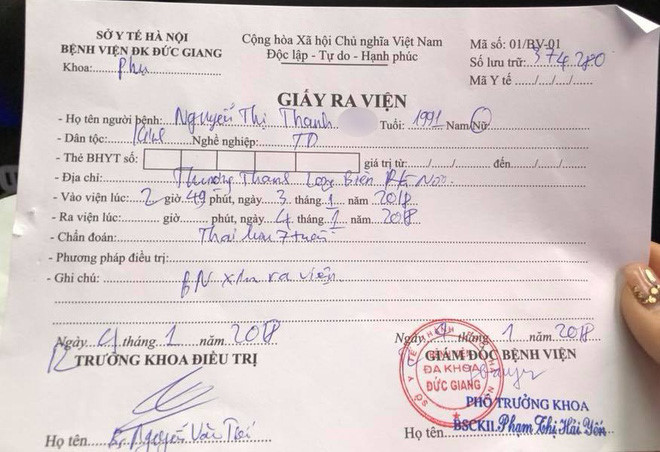 SỞ Y TẾ HÀ NỘI
BỆNH VIỆN ĐK ĐỨC GIANG
Khoa: Phụ
Cộng hòa Xã hội Chủ nghĩa Việt Nam
Độc lập - Tự do - Hạnh phúc
Mã số: 01/BV-01
Số lưu trữ: 374.280
Mã Y tế ..../..../..../....
GIẤY RA VIỆN
- Họ tên người bệnh: Nguyễn Thị Thanh Tuổi: 1991 Nam/Nữ
- Dân tộc: Kinh Nghề nghiệp: TD
- Thẻ BHYT số: giá trị từ:..../..../.... đến..../..../....
- Địa chỉ: Thượng Thanh Long Biên Hà Nội
- Vào viện lúc: 2 giờ 49 phút, ngày 3 tháng 1 năm 2018
- Ra viện lúc: giờ phút, ngày 4 tháng 1 năm 2018
- Chẩn đoán: Thai lưu 7 tuần
- Phương pháp điều trị:
- Ghi chú: BN xin ra viện
Ngày 4 tháng 1 năm 2018
TRƯỞNG KHOA ĐIỀU TRỊ
Họ tên Bs. Nguyễn Văn
Ngày 4 tháng 1 năm 2018
GIÁM ĐỐC BỆNH VIỆN
ĐA KHOA
ĐỨC GIANG
PHÓ TRƯỞNG KHOA
Họ tên BSCKII. Phạm Thị Hải Yến